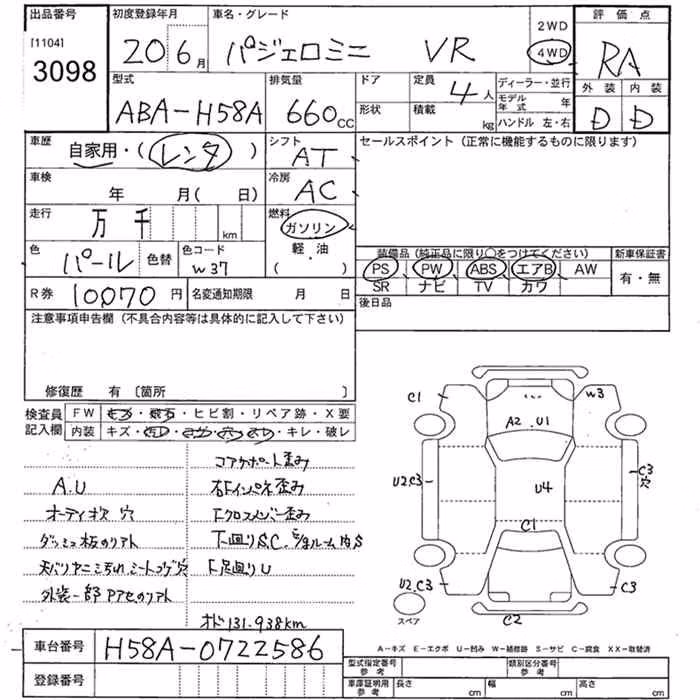 出品番号 初度登録年月 車名・グレード 2WD 評価点
[1104] 20 6月 パジェロミニ VR 4WD RA
3098
型式 排気量 ドア 定員 4人 ディーラー・並行 外装 内装
ABA-H58A 660cc 形状 積載 kg モデル年式 年 D D
ハンドル 左・右
車歴 自家用・(レンタ) シフト AT セールスポイント (正常に機能するものに限ります)
車検 年 月(日) 冷房 AC
走行 万 千 km 燃料 ガソリン
軽・油
( )
色 パール 色替 色コード W37
装備品 (純正品に限り○をつけてください) 新車保証書
PS PW ABS エアB AW 有・無
SR ナビ TV カワ
R券 10070円 名変通知期限 月 日 後日品
注意事項申告欄 (不具合内容等は具体的に記入して下さい)
修復歴 有 [箇所 ]
検査員 FW キズ・飛石・ヒビ割・リペア跡・X要
記入欄 内装 キズ・・・・キレ・破レ
コアサポート歪み
A.U 右Fインパネ歪み
オーディオ次 穴 Fクロスメンバー歪み
ダッシュ板のリアト 下回りS.C.
天バリヤニ ミートメグ穴 F足回りU
外装一部アセのリアト
オド131.938km
C1 W3
A2 U1
U2.C3 C3
穴
U4
C1
U2.C3 C3
スペア C2
A-キズ E-エクボ U-凹み W-補修跡 S-サビ C-腐食 XX-取替済
車台番号 H58A-0722586
登録番号
型式指定番号 参考 類別区分番号 参考
車庫証明用 参考 長さ cm 幅 cm 高さ cm